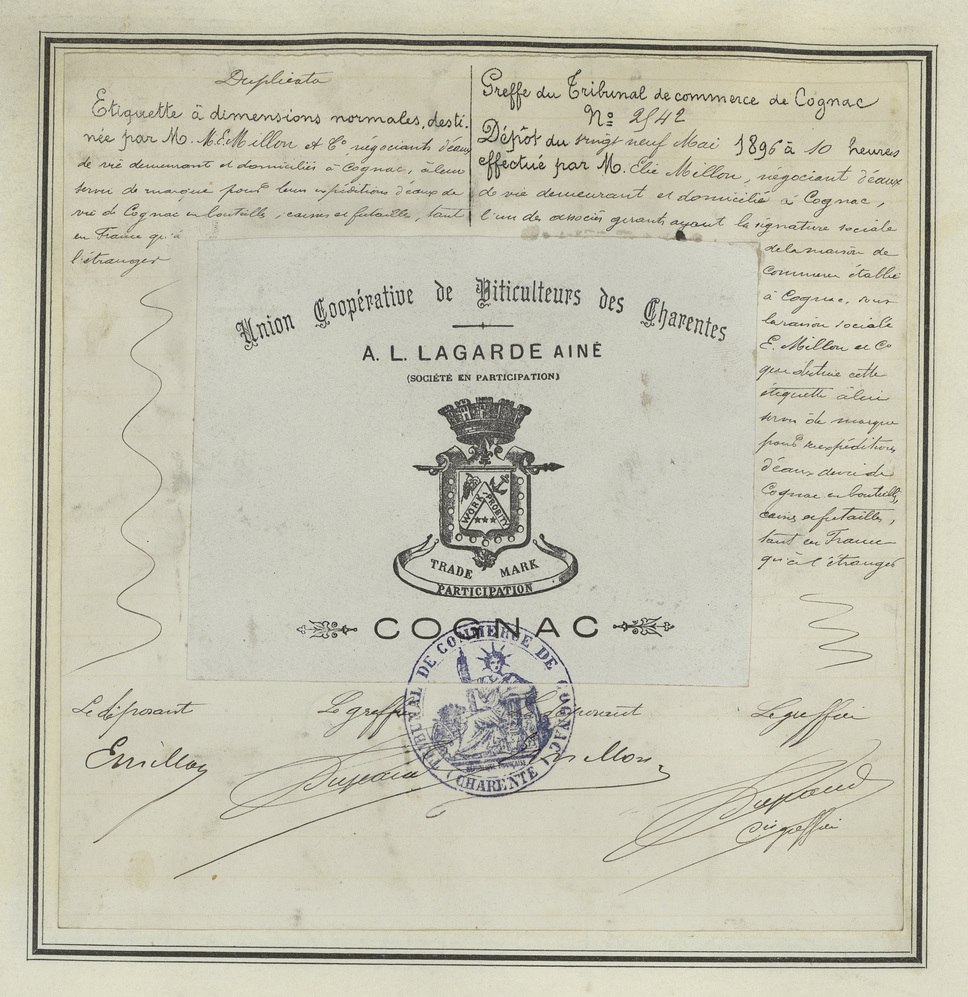 Duplicata
Etiquette à dimensions normales, desti-
née par M. M. E. Millon et Cº négociants d'eaux
de vie demeurant et domiciliés à Cognac, à leur
servir de marque pour leurs expéditions d'eaux de
vie de Cognac en bouteille, caisses et futailles, tant
en France qu'à
l'étranger
Greffe du Tribunal de commerce de Cognac
Nº 2542
Dépôt du vingt neuf Mai 1896 à 10 heures
effectué par M. Elie Millon, négociant d'eaux
de vie demeurant et domicilié à Cognac,
l'un des associés gérants ayant la signature sociale
de la maison de
commerce établie
à Cognac, sous
la raison sociale
E. Millon et Cº
qui destine cette
étiquette à leur
servir de marque
pour les expéditions
d'eaux de vie de
Cognac en bouteilles,
caisses et futailles,
tant en France
qu'à l'étranger
Union Coopérative de Viticulteurs des Charentes
A. L. LAGARDE AINÉ
(SOCIÉTÉ EN PARTICIPATION)
WORK PROBITY
TRADE MARK
PARTICIPATION
COGNAC
TRIBUNAL DE COMMERCE DE COGNAC
(CHARENTE)
Le déposant Le greffier Le déposant Le greffier
EMillon Millon
Cis greffier